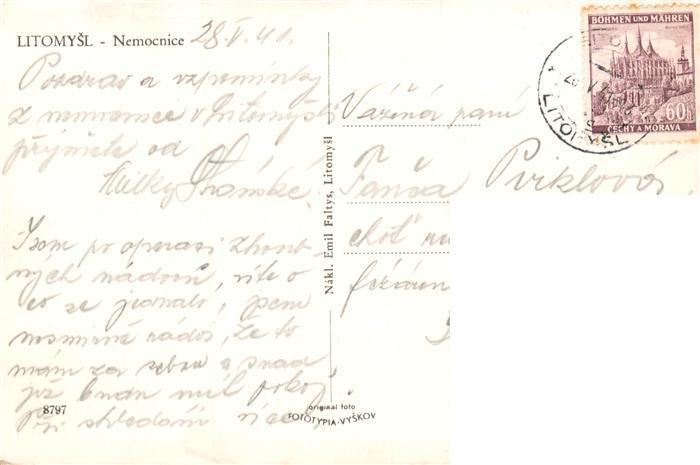 LITOMYŠL - Nemocnice 28.V.41.
Pozdrav a vzpomínky
z nemocnice v Litomyšli
přijměte od
Milky
Jsem po operaci zhoub-
ných nádorů, víte o
co se jednalo, jsem
nesmírně rád, že to
mám za sebou a snad
již budu mít pokoj.
Při shledání více
8797
Nákl. Emil Faltys, Litomyšl
original foto
FOTOTYPIA-VYŠKOV
Vážená paní
Fanča Piklová
choť
BÖHMEN UND MÄHREN
60h
ČECHY A MORAVA
LITOMYŠL